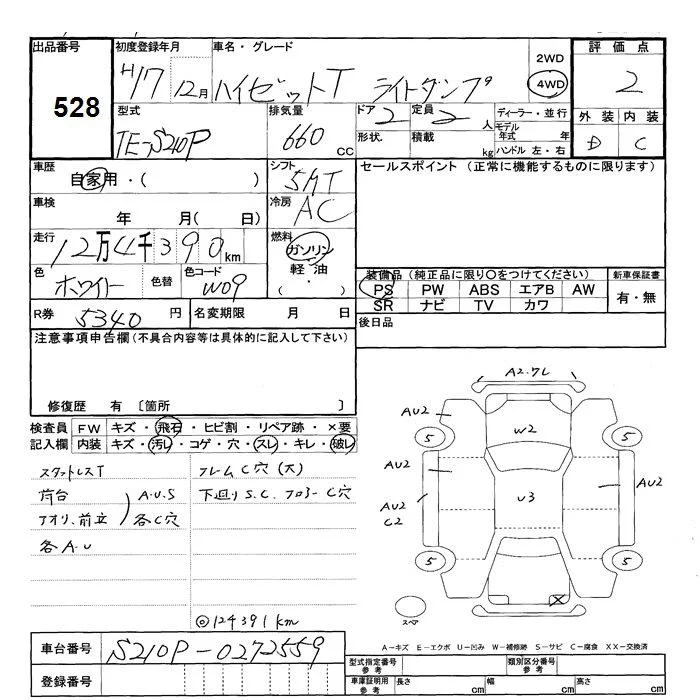 出品番号 初度登録年月 車名・グレード 2WD 評価点
528 H17 12月 ハイゼットT ライトダンプ 4WD 2
型式 排気量 ドア 定員 ディーラー・並行 外装 内装
TE-S210P 660 CC 2 2人 モデル年式 年 D C
形状 積載 kg ハンドル 左・右
車歴 自家用・( ) シフト 5MT セールスポイント (正常に機能するものに限ります)
車検 年 月( 日) 冷房 AC
走行 12万4千390km 燃料 ガソリン 軽油・( )
色 ホワイト 色替 色コード W09
装備品(純正品に限り○をつけてください) 新車保証書
PS PW ABS エアB AW 有・無
SR ナビ TV カワ
R券 5340円 名変期限 月 日 後日品
注意事項申告欄(不具合内容等は具体的に記入して下さい)
修復歴 有 〔箇所
検査員記入欄 FW キズ・飛石・ヒビ割・リペア跡・×要
内装 キズ・汚レ・コゲ・穴・スレ・キレ・破レ
スタットレスT フレームC穴(大)
荷台 A.U.S 下廻りS.C. フロアーC穴
アオリ、前立 各C穴
各A.U
◎124391km
A2.7L
AU2
W2
5 5
AU2 AU2
AU2 U3 AU2
C2
5 5
X
スペア
A-キズ E-エクボ U-凹み W-補修跡 S-サビ C-腐食 XX-交換済
車台番号 S210P-0272559
型式指定番号 参考 類別区分番号 参考
登録番号 車庫証明用 参考 長さ cm 幅 cm 高さ cm